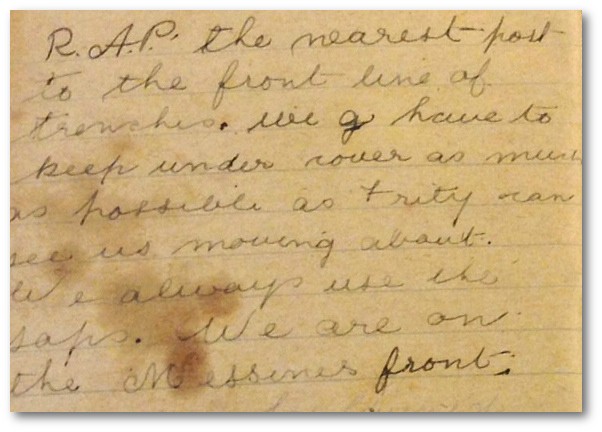 R.A.P. the nearest post
to the front line of
trenches. We g have to
keep under cover as much
as possible as Fritz can
see us moving about.
We always use the
saps. We are on
the Messines front.